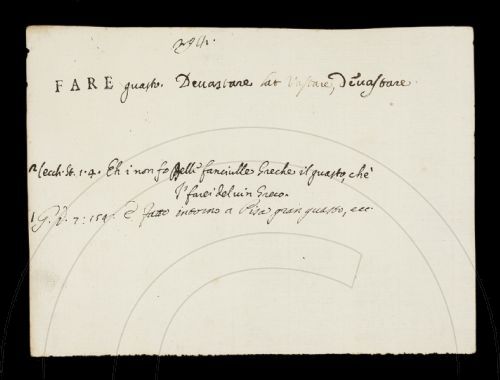 FARE guasto. Deuastare lat Vastare, deuastare
Cecch. St. 1.4. Eh i non fo delle fanciulle Greche il guasto, che
I' farei del uin Greco.
G. V. 7: 154. E fatto intorno a Pisa gran guasto, ecc.